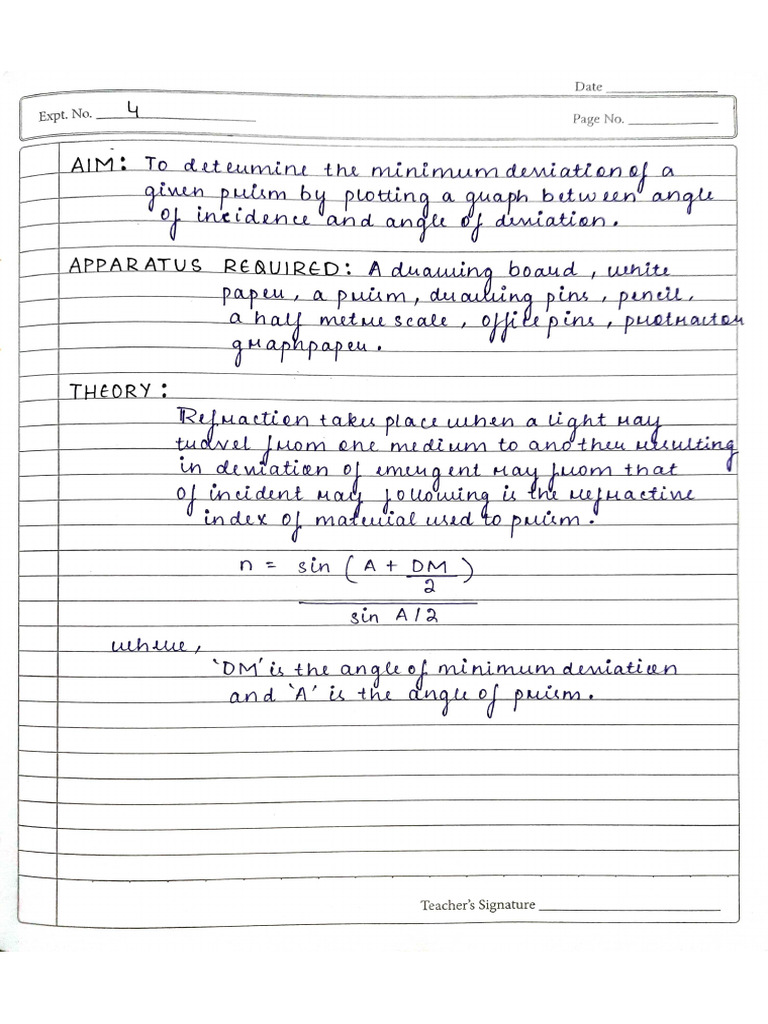 Date
Expt. No. 4
Page No.
AIM: To determine the minimum deviation of a
given prism by plotting a graph between angle
of incidence and angle of deviation.
APPARATUS REQUIRED: A drawing board, white
paper, a prism, drawing pins, pencil,
a half metre scale, office pins, protractor
graphpaper.
THEORY:
Refraction takes place when a light ray
travel from one medium to another resulting
in deviation of emergent ray from that
of incident ray following is the refractive
index of material used to prism.
n = sin (A + DM/2)
sin A/2
where,
'DM' is the angle of minimum deviation
and 'A' is the angle of prism.
Teacher's Signature